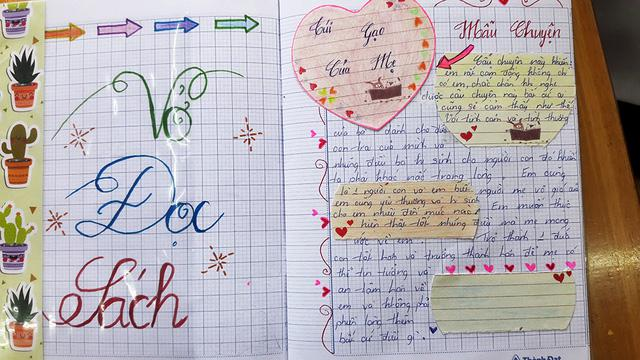 Vở
Đọc
Sách
Túi Gạo
Của Mẹ
Mẩu Chuyện
Câu chuyện này khiến
em rất cảm động không chỉ
có em, phải chăn khi nghe
câu chuyện này bất cứ ai
cũng sẽ cảm thấy như thế.
Với tình cảm và tình thương
được
của bà dành cho đứa
con trai của mình và
những điều bà hi sinh cho người con đó khiến
ta phải khắc mắc trong lòng. Em cũng
là 1 người con và em biết
em cũng yêu thương và hi sinh
cho em nhiều đến mức nào
người mẹ vô giá của
Em muốn thực
hiện thật tốt những điều mà mẹ mong
ước về em. Trở thành 1 đứa
con tốt hơn và trưởng thành hơn để mẹ có
thể tin tưởng và
an tâm hơn về
em và không phải
phiền lòng thêm
bất cứ điều gì.
Thành Đạt